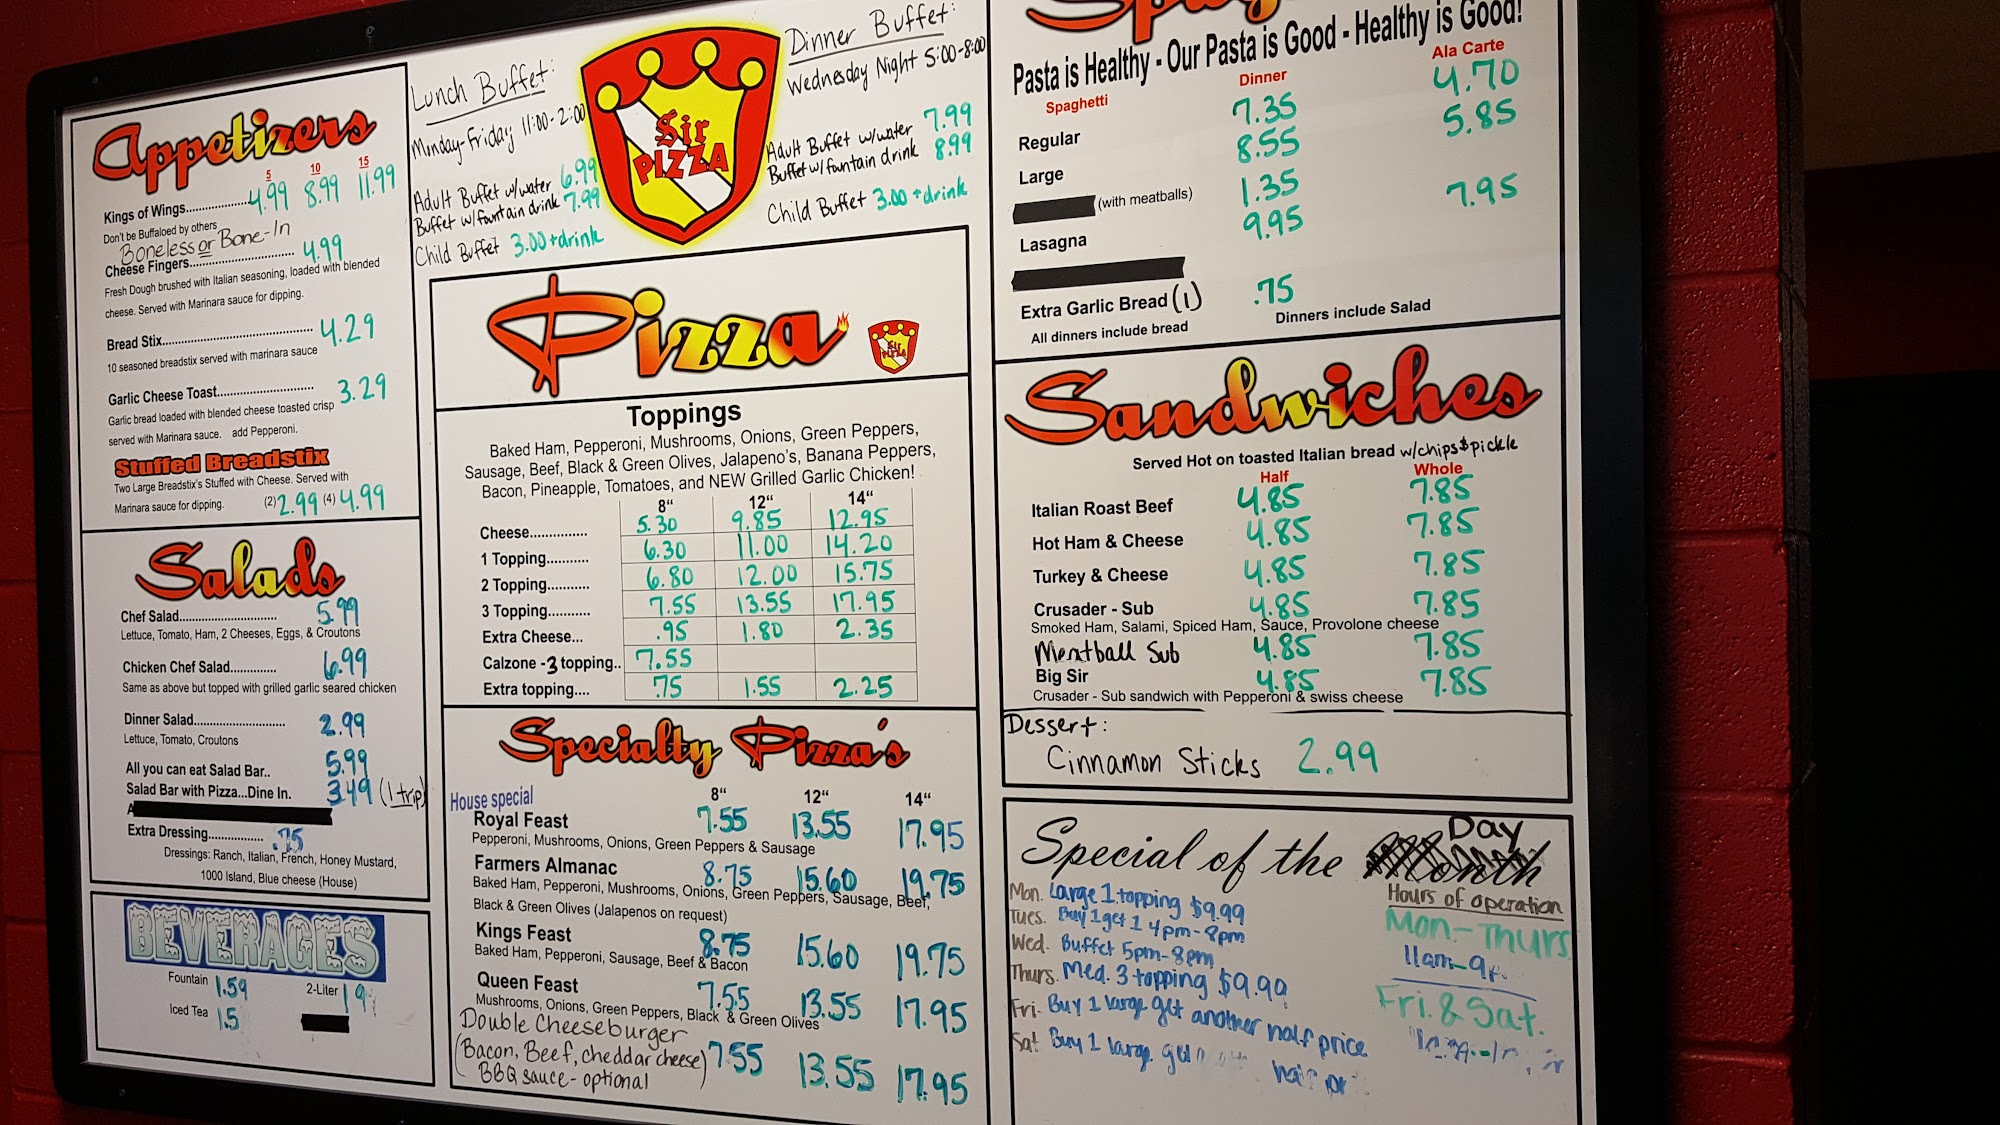 Appetizers
5 10 15
Kings of Wings.................... 4.99 8.99 11.99
Don't be Buffaloed by others
Boneless or Bone-In
Cheese Fingers............................... 4.99
Fresh Dough brushed with Italian seasoning, loaded with blended
cheese. Served with Marinara sauce for dipping.
Bread Stix........................................ 4.29
10 seasoned breadstix served with marinara sauce
Garlic Cheese Toast.......................... 3.29
Garlic bread loaded with blended cheese toasted crisp
served with Marinara sauce. add Pepperoni.
Stuffed Breadstix
Two Large Breadstix's Stuffed with Cheese. Served with
Marinara sauce for dipping. (2) 2.99 (4) 4.99
Salads
Chef Salad............................ 5.99
Lettuce, Tomato, Ham, 2 Cheeses, Eggs, & Croutons
Chicken Chef Salad............. 6.99
Same as above but topped with grilled garlic seared chicken
Dinner Salad.......................... 2.99
Lettuce, Tomato, Croutons
All you can eat Salad Bar.. 5.99
Salad Bar with Pizza...Dine In. 3.49 (1 trip)
A
Extra Dressing................ .75
Dressings: Ranch, Italian, French, Honey Mustard,
1000 Island, Blue cheese (House)
BEVERAGES
Fountain 1.59 2-Liter
Iced Tea 1.5
Lunch Buffet:
Monday-Friday 11:00-2:00
Adult Buffet w/water 6.99
Buffet w/fountain drink 7.99
Child Buffet 3.00 + drink
Sir
PIZZA
Dinner Buffet:
Wednesday Night 5:00-8:00
Adult Buffet w/water 7.99
Buffet w/fountain drink 8.99
Child Buffet 3.00 + drink
Pizza
Sir
PIZZA
Toppings
Baked Ham, Pepperoni, Mushrooms, Onions, Green Peppers,
Sausage, Beef, Black & Green Olives, Jalapeno's, Banana Peppers,
Bacon, Pineapple, Tomatoes, and NEW Grilled Garlic Chicken!
8" 12" 14"
Cheese............... 5.30 9.85 12.95
1 Topping........... 6.30 11.00 14.20
2 Topping........... 6.80 12.00 15.75
3 Topping........... 7.55 13.55 17.95
Extra Cheese... .95 1.80 2.35
Calzone -3 topping.. 7.55
Extra topping.... .75 1.55 2.25
Specialty Pizza's
House special 8" 12" 14"
Royal Feast 7.55 13.55 17.95
Pepperoni, Mushrooms, Onions, Green Peppers & Sausage
Farmers Almanac 8.75 15.60 19.75
Baked Ham, Pepperoni, Mushrooms, Onions, Green Peppers, Sausage, Beef,
Black & Green Olives (Jalapenos on request)
Kings Feast 8.75 15.60 19.75
Baked Ham, Pepperoni, Sausage, Beef & Bacon
Queen Feast 7.55 13.55 17.95
Mushrooms, Onions, Green Peppers, Black & Green Olives
Double Cheeseburger
(Bacon, Beef, cheddar cheese) 7.55 13.55 17.95
BBQ sauce - optional
Pasta is Healthy - Our Pasta is Good - Healthy is Good!
Spaghetti Dinner Ala Carte
Regular 7.35 4.70
Large 8.55 5.85
(with meatballs) 1.35
Lasagna 9.95 7.95
Extra Garlic Bread (1) .75
All dinners include bread Dinners include Salad
Sandwiches
Served Hot on toasted Italian bread w/chips & pickle
Half Whole
Italian Roast Beef 4.85 7.85
Hot Ham & Cheese 4.85 7.85
Turkey & Cheese 4.85 7.85
Crusader - Sub 4.85 7.85
Smoked Ham, Salami, Spiced Ham, Sauce, Provolone cheese
Meatball Sub 4.85 7.85
Big Sir 4.85 7.85
Crusader - Sub sandwich with Pepperoni & swiss cheese
Dessert:
Cinnamon Sticks 2.99
Special of the Day
Mon. Large 1 topping $9.99
Tues. Buy 1 get 1 4pm-8pm
Wed. Buffet 5pm-8pm
Thurs. Med. 3 topping $9.99
Fri. Buy 1 large get another half price
Sat Buy 1 large get half pr
Hours of operation
Mon-Thurs
11am-9
Fri. & Sat.